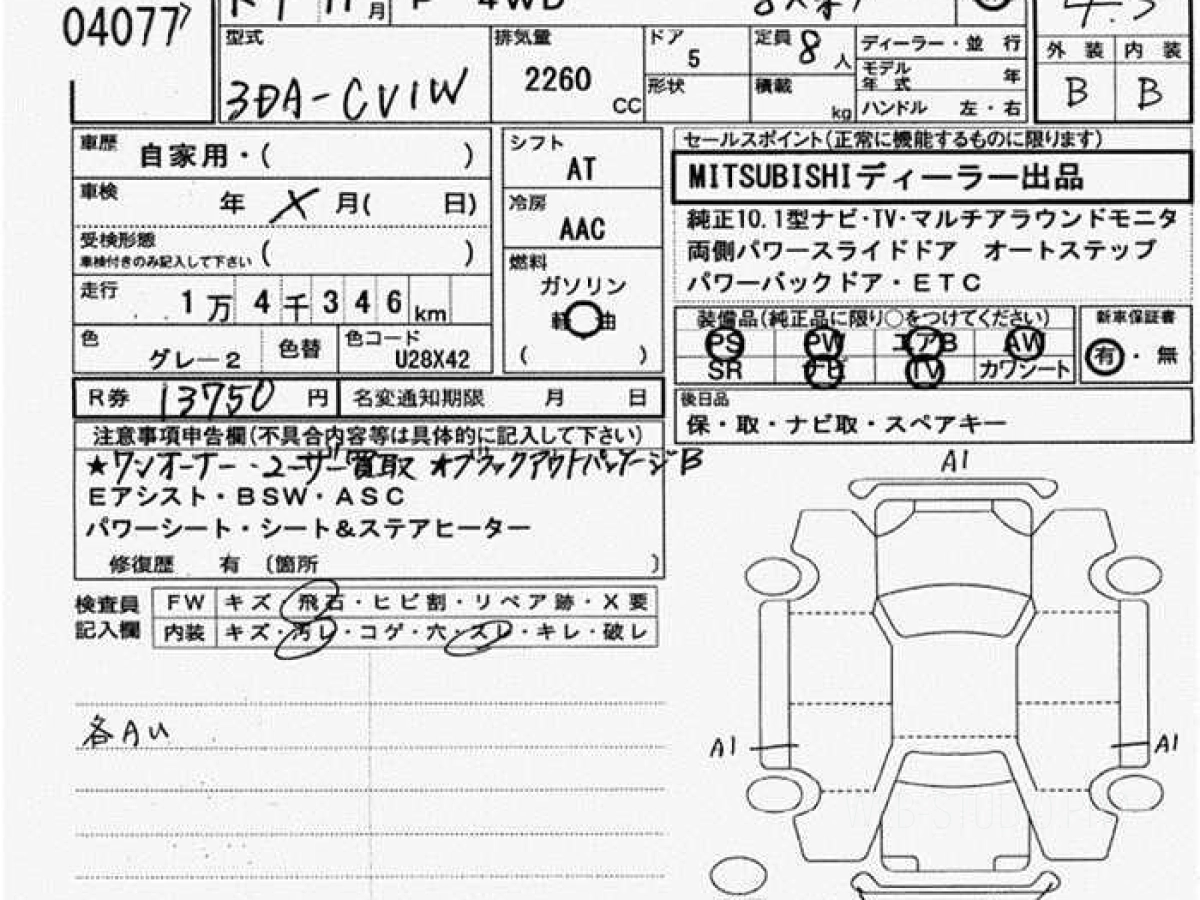 04077
月 P 4WD 4.5
型式 3DA-CV1W
排気量 2260 CC
ドア 5
形状
定員 8 人
積載 kg
ディーラー・並 行
モデル年式 年
ハンドル 左・右
外 装 内 装
B B
車歴 自家用・( )
車検 年 X 月( 日)
受検形態
車検付きのみ記入して下さい ( )
走行 1万4千346km
色 グレー2 色替 色コード U28X42
シフト AT
冷房 AAC
燃料 ガソリン
軽 油
( )
セールスポイント(正常に機能するものに限ります)
MITSUBISHIディーラー出品
純正10.1型ナビ・TV・マルチアラウンドモニタ
両側パワースライドドア オートステップ
パワーバックドア・ETC
装備品(純正品に限り○をつけてください)
PS PW エアB AW
SR ナビ TV カワシート
新車保証書
有・無
R券 13750 円 名変通知期限 月 日
後日品
保・取・ナビ取・スペアキー
注意事項申告欄(不具合内容等は具体的に記入して下さい)
★ワンオーナー・ユーザー買取 ★ブラックアウトパッケージB
Eアシスト・BSW・ASC
パワーシート・シート&ステアヒーター
修復歴 有 〔箇所 〕
検査員記入欄
FW キズ・飛石・ヒビ割・リペア跡・X要
内装 キズ・汚レ・コゲ・穴・スレ・キレ・破レ
各AU
A1
A1
A1